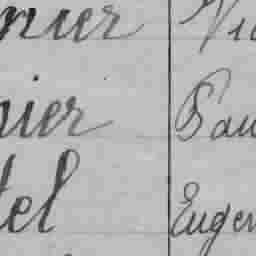 nier Vic
nier Pau
tel Eugen